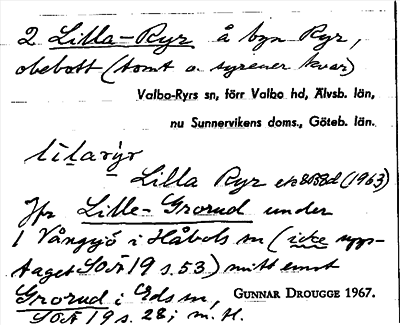 2 Lilla-Ryr å byn Ryr,
obebott (tomt o. syrener kvar)
Valbo-Ryrs sn, förr Valbo hd, Älvsb. län,
nu Sunnervikens doms., Göteb. län.
Lilla Ryr (1963)
Jfr Lille-Grorud under
1 Vångsjö i Håbols sn (icke upp-
taget SOÄ 19 s. 53) mitt emot
Grorud i Eds sn,
GUNNAR DROUGGE 1967.
SOÄ 19 s. 28; m. fl.